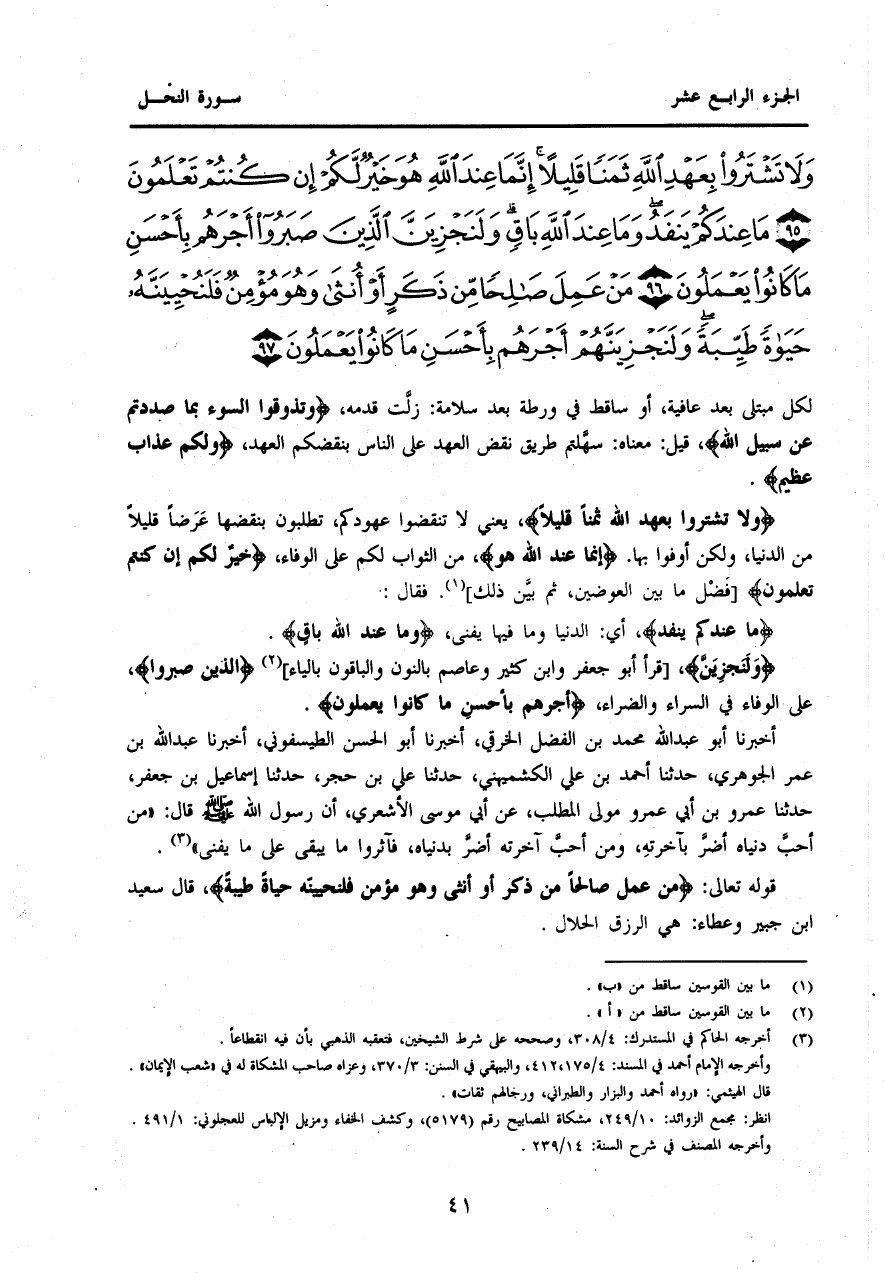 الجزء الرابع عشر
سورة النحل
وَلَا تَشْتَرُوا۟ بِعَهْدِ ٱللَّهِ ثَمَنًا قَلِيلًا ۚ إِنَّمَا عِندَ ٱللَّهِ هُوَ خَيْرٌ لَّكُمْ إِن كُنتُمْ تَعْلَمُونَ
﴿٩٥﴾ مَا عِندَكُمْ يَنفَدُ ۖ وَمَا عِندَ ٱللَّهِ بَاقٍ ۗ وَلَنَجْزِيَنَّ ٱلَّذِينَ صَبَرُوٓا۟ أَجْرَهُم بِأَحْسَنِ
مَا كَانُوا۟ يَعْمَلُونَ ﴿٩٦﴾ مَنْ عَمِلَ صَٰلِحًا مِّن ذَكَرٍ أَوْ أُنثَىٰ وَهُوَ مُؤْمِنٌ فَلَنُحْيِيَنَّهُۥ
حَيَوٰةً طَيِّبَةً ۖ وَلَنَجْزِيَنَّهُمْ أَجْرَهُم بِأَحْسَنِ مَا كَانُوا۟ يَعْمَلُونَ ﴿٩٧﴾
لكل مبتلى بعد عافية، أو ساقط في ورطة بعد سلامة: زلَّت قدمه، ﴿وتذوقوا السوء بما صددتم
عن سبيل الله﴾، قيل: معناه: سهَّلتم طريق نقض العهد على الناس بنقضكم العهد، ﴿ولكم عذاب
عظيم﴾ .
﴿ولا تشتروا بعهد الله ثمناً قليلاً﴾، يعني لا تنقضوا عهودكم، تطلبون بنقضها عَرَضاً قليلاً
من الدنيا، ولكن أوفوا بها. ﴿إنما عند الله هو﴾، من الثواب لكم على الوفاء، ﴿خيرٌ لكم إن كنتم
تعلمون﴾ [فَضْل ما بين العوضين، ثم بيَّن ذلك](١). فقال :
﴿ما عندكم ينفد﴾، أي: الدنيا وما فيها يفنى، ﴿وما عند الله باقٍ﴾ .
﴿وَلَنَجزِيَنَّ﴾، [قرأ أبو جعفر وابن كثير وعاصم بالنون والباقون بالياء](٢) ﴿الذين صبروا﴾،
على الوفاء في السراء والضراء، ﴿أجرهم بأحسنِ ما كانوا يعملون﴾ .
أخبرنا أبو عبدالله محمد بن الفضل الخرقي، أخبرنا أبو الحسن الطيسفوني، أخبرنا عبدالله بن
عمر الجوهري، حدثنا أحمد بن علي الكشميهني، حدثنا علي بن حجر، حدثنا إسماعيل بن جعفر،
حدثنا عمرو بن أبي عمرو مولى المطلب، عن أبي موسى الأشعري، أن رسول الله ﷺ قال: «من
أحبَّ دنياه أضرَّ بآخرتهِ، ومن أحبَّ آخرته أضرَّ بدنياه، فآثروا ما يبقى على ما يفنى»(٣) .
قوله تعالى: ﴿من عمل صالحاً من ذكر أو أنثى وهو مؤمن فلنحيينّه حياةً طيبةً﴾، قال سعيد
ابن جبير وعطاء: هي الرزق الحلال .
(١) ما بين القوسين ساقط من «ب» .
(٢) ما بين القوسين ساقط من «أ» .
(٣) أخرجه الحاكم في المستدرك: ٣٠٨/٤، وصححه على شرط الشيخين، فتعقبه الذهبي بأن فيه انقطاعاً .
وأخرجه الإمام أحمد في المسند: ٤١٢،١٧٥/٤، والبيهقي في السنن: ٣٧٠/٣، وعزاه صاحب المشكاة له في «شعب الإيمان» .
قال الهيثمي: «رواه أحمد والبزار والطبراني، ورجالهم ثقات» .
انظر: مجمع الزوائد: ٢٤٩/١٠، مشكاة المصابيح رقم (٥١٧٩)، وكشف الخفاء ومزيل الإلباس للعجلوني: ٤٩١/١ .
وأخرجه المصنف في شرح السنة: ٢٣٩/١٤ .
٤١